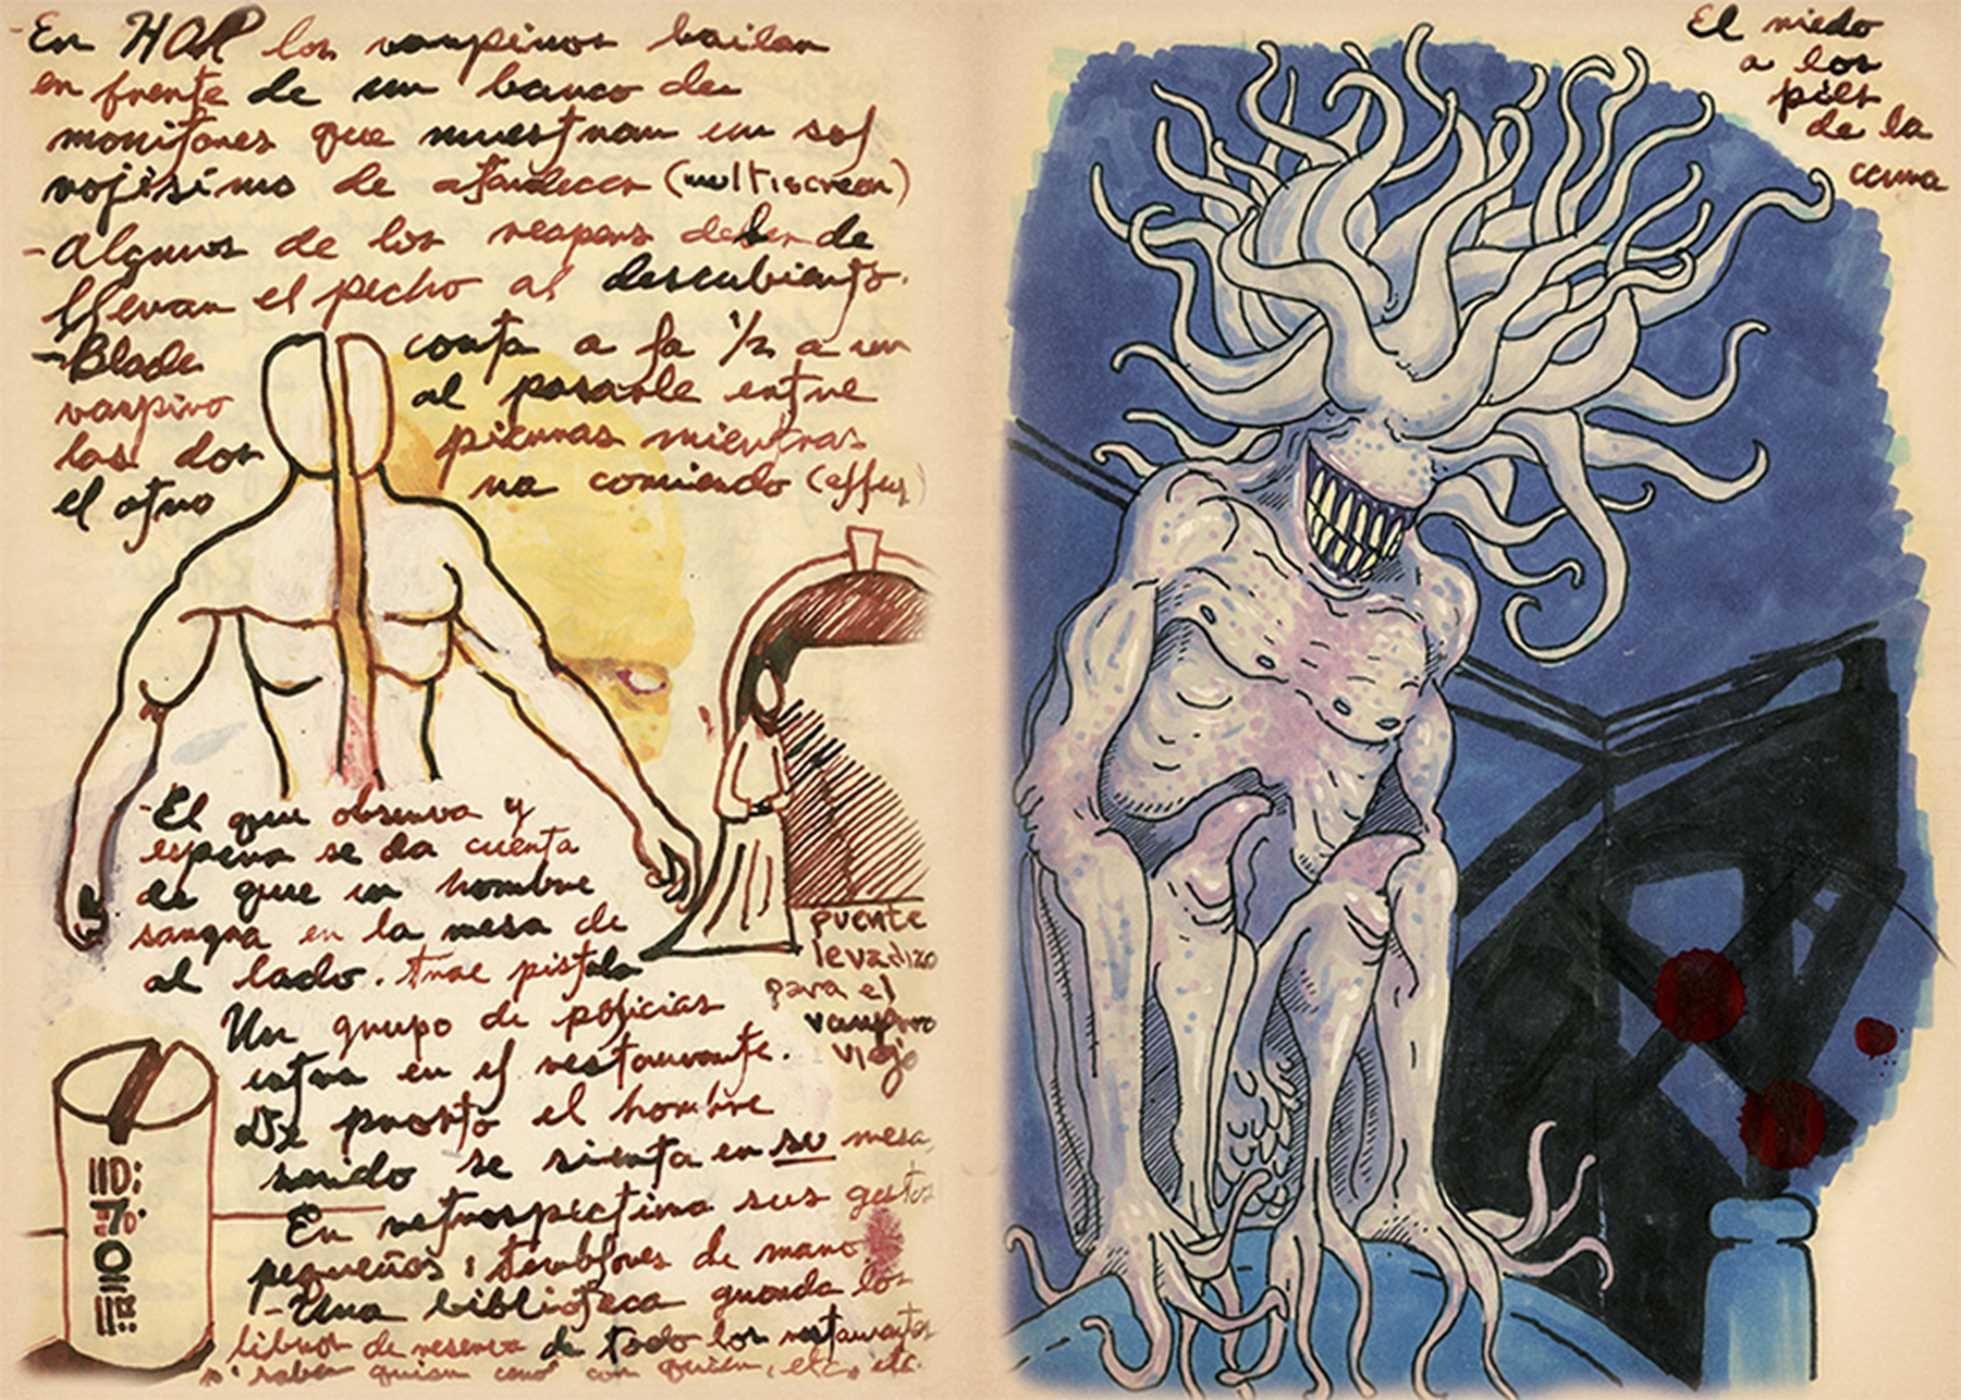 -En HOP los vampiros bailan
en frente de un banco de
monitores que muestran un sol
rojísimo de atardecer (multiscreen)
-Algunos de los reapers deben de
llevar el pecho al descubierto.
-Blade corta a la 1/2 a un
vampiro al pasarle entre
las dos piernas mientras
el otro va comiendo
-El que observa y
espera se da cuenta
de que un hombre
sangra en la mesa de
al lado. trae pistola
Un grupo de policías
entra en el restaurante.
De pronto el hombre
se sienta en su mesa
En retrospectiva sus gestos
pequeños: temblores de mano
-Una biblioteca guarda los
libros de reserva de todo los restaurantes
saber quien cenó con quien, etc, etc.
puente
levadizo
para el
vampiro
viejo
El miedo
a los
pies
de la
cama